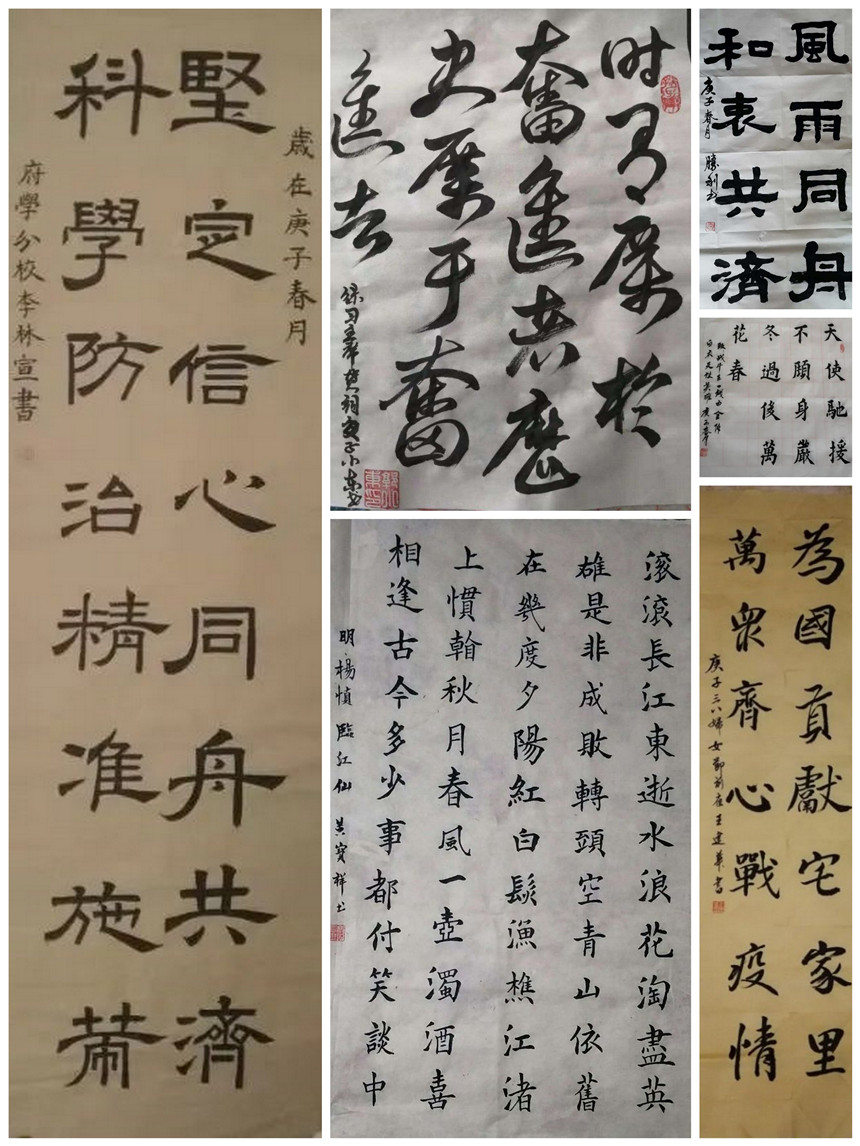 歲在庚子春月
堅定信心同舟共濟
科學防治精准施策
府學分校李林宣書
时间屬於
奮進者歷
史屬于奮
進者
庚子小東书
風雨同舟
和衷共濟
庚子春月 勝利书
天使馳援
不顧身嚴
冬過後萬
花春
滾滾長江東逝水浪花淘盡英
雄是非成敗轉頭空青山依舊
在幾度夕陽紅白髮漁樵江渚
上慣翰秋月春風一壺濁酒喜
相逢古今多少事都付笑談中
明楊慎臨江仙 黃寶祥书
為國貢獻宅家里
萬眾齊心戰疫情
庚子三八婦女節劉庄王建華書